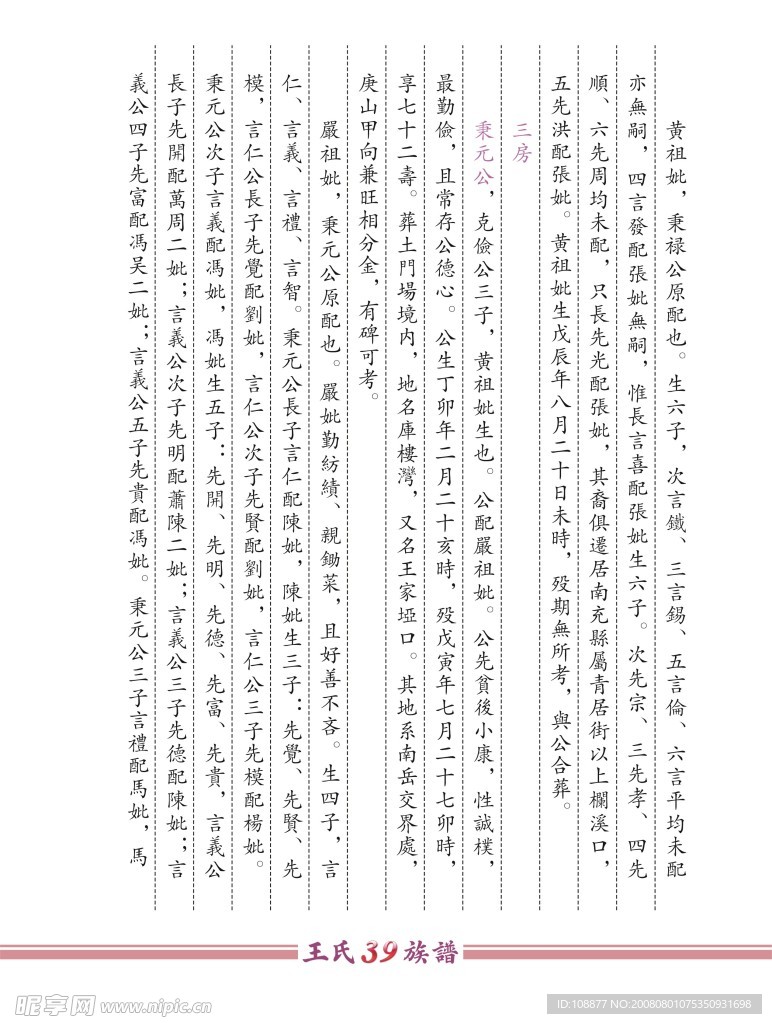 黃祖妣，秉禄公原配也。生六子，次言鐵、三言錫、五言倫、六言平均未配
亦無嗣，四言發配張妣無嗣，惟長言喜配張妣生六子。次先宗、三先孝、四先
順、六先周均未配，只長先光配張妣，其裔俱遷居南充縣屬青居街以上欄溪口，
五先洪配張妣。黃祖妣生戊辰年八月二十日未時，歿期無所考，與公合葬。
三房
秉元公，克儉公三子，黃祖妣生也。公配嚴祖妣。公先貧後小康，性誠樸，
最勤儉，且常存公德心。公生丁卯年二月二十亥時，歿戊寅年七月二十七卯時，
享七十二壽。葬土門場境内，地名庫樓灣，又名王家埡口。其地系南岳交界處，
庚山甲向兼旺相分金，有碑可考。
嚴祖妣，秉元公原配也。嚴妣勤紡績、親鋤菜，且好善不吝。生四子，言
仁、言義、言禮、言智。秉元公長子言仁配陳妣，陳妣生三子：先覺、先賢、先
模，言仁公長子先覺配劉妣，言仁公次子先賢配劉妣，言仁公三子先模配楊妣。
秉元公次子言義配馮妣，馮妣生五子：先開、先明、先德、先富、先貴，言義公
長子先開配萬周二妣；言義公次子先明配蕭陳二妣；言義公三子先德配陳妣；言
義公四子先富配馮吴二妣；言義公五子先貴配馮妣。秉元公三子言禮配馬妣，馬
王氏39族譜
昵享网 www.nipic.cn
ID:108877 NO:20080801075350931698